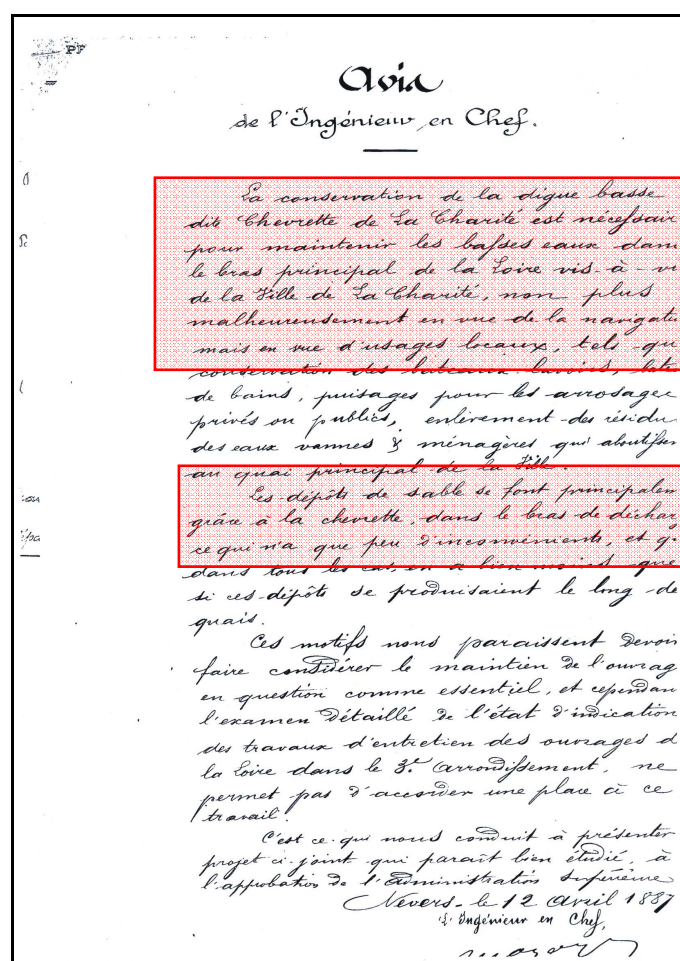 PF
Avis
de l'Ingénieur en Chef.
La conservation de la digue basse
dite Chevrette de La Charité est nécessair
pour maintenir les basses eaux dans
le bras principal de la Loire vis-à-vi
de la Ville de La Charité, non plus
malheureusement en vue de la navigati
mais en vue d'usages locaux, tels que
conservation des bateaux lavoirs,
de bains, puisages pour les arrosages
privés ou publics, enlèvement des résidu
des eaux vannes & ménagères qui aboutissen
au quai principal de la Ville.
Les dépôts de sable se font principalem
grâce à la chevrette, dans le bras de déchar
ce qui n'a que peu d'inconvénients, et q
dans tous les cas, en a bien moins que
si ces dépôts se produisaient le long de
quais.
Ces motifs nous paraissent devoir
faire considérer le maintien de l'ouvrag
en question comme essentiel, et cependan
l'examen détaillé de l'état d'indication
des travaux d'entretien des ouvrages d
la Loire dans le 3e arrondissement, ne
permet pas d'accorder une place à ce
travail.
C'est ce qui nous conduit à présenter
projet ci-joint qui paraît bien étudié, à
l'approbation de l'administration supérieure
Nevers, le 12 avril 1887
L'Ingénieur en Chef,